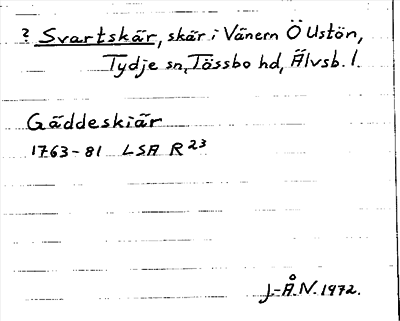 ? Svartskär, skär i Vänern Ö Ustön,
Tydje sn, Tössbo hd, Älvsb. l.
Gäddeskiär
1763-81 LSA R 23
J-Å.N. 1972.